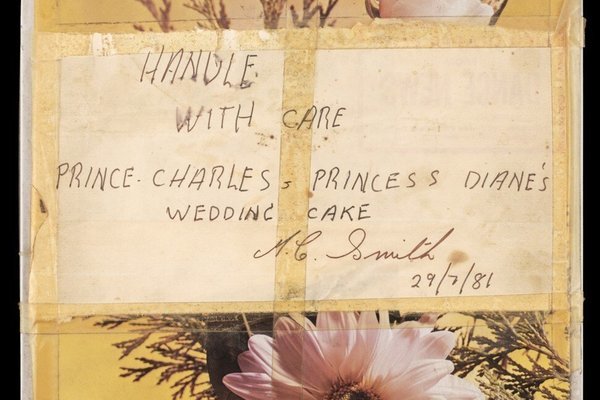 HANDLE.
WITH CARE
PRINCE. CHARLES, PRINCESS DIANE'S
WEDDING CAKE
N.C. Smith
29/7/81